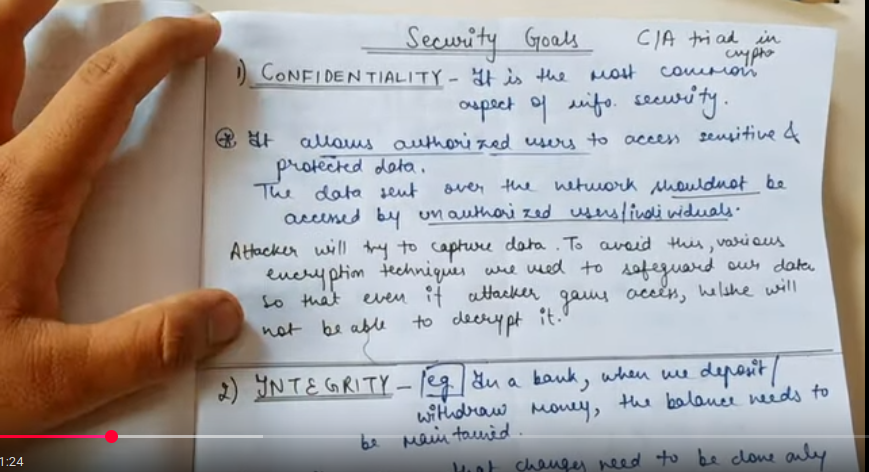 Security Goals
CIA triad in
crypto
1) CONFIDENTIALITY - It is the most common
aspect of info. security.
* It allows authorized users to access sensitive &
protected data.
The data sent over the network shouldnot be
accessed by unauthorized users/individuals.
Attacker will try to capture data. To avoid this, various
encryption techniques are used to safeguard our data
so that even if attacker gains access, he/she will
not be able to decrypt it.
2) INTEGRITY - eg In a bank, when we deposit/
withdraw money, the balance needs to
be maintained.
that changes need to be done only
1:24